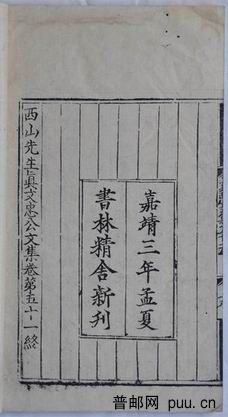 嘉靖三年孟夏
書林精舍新刊
西山先生眞文忠公文集卷第五十一終
普邮网 puu.cn